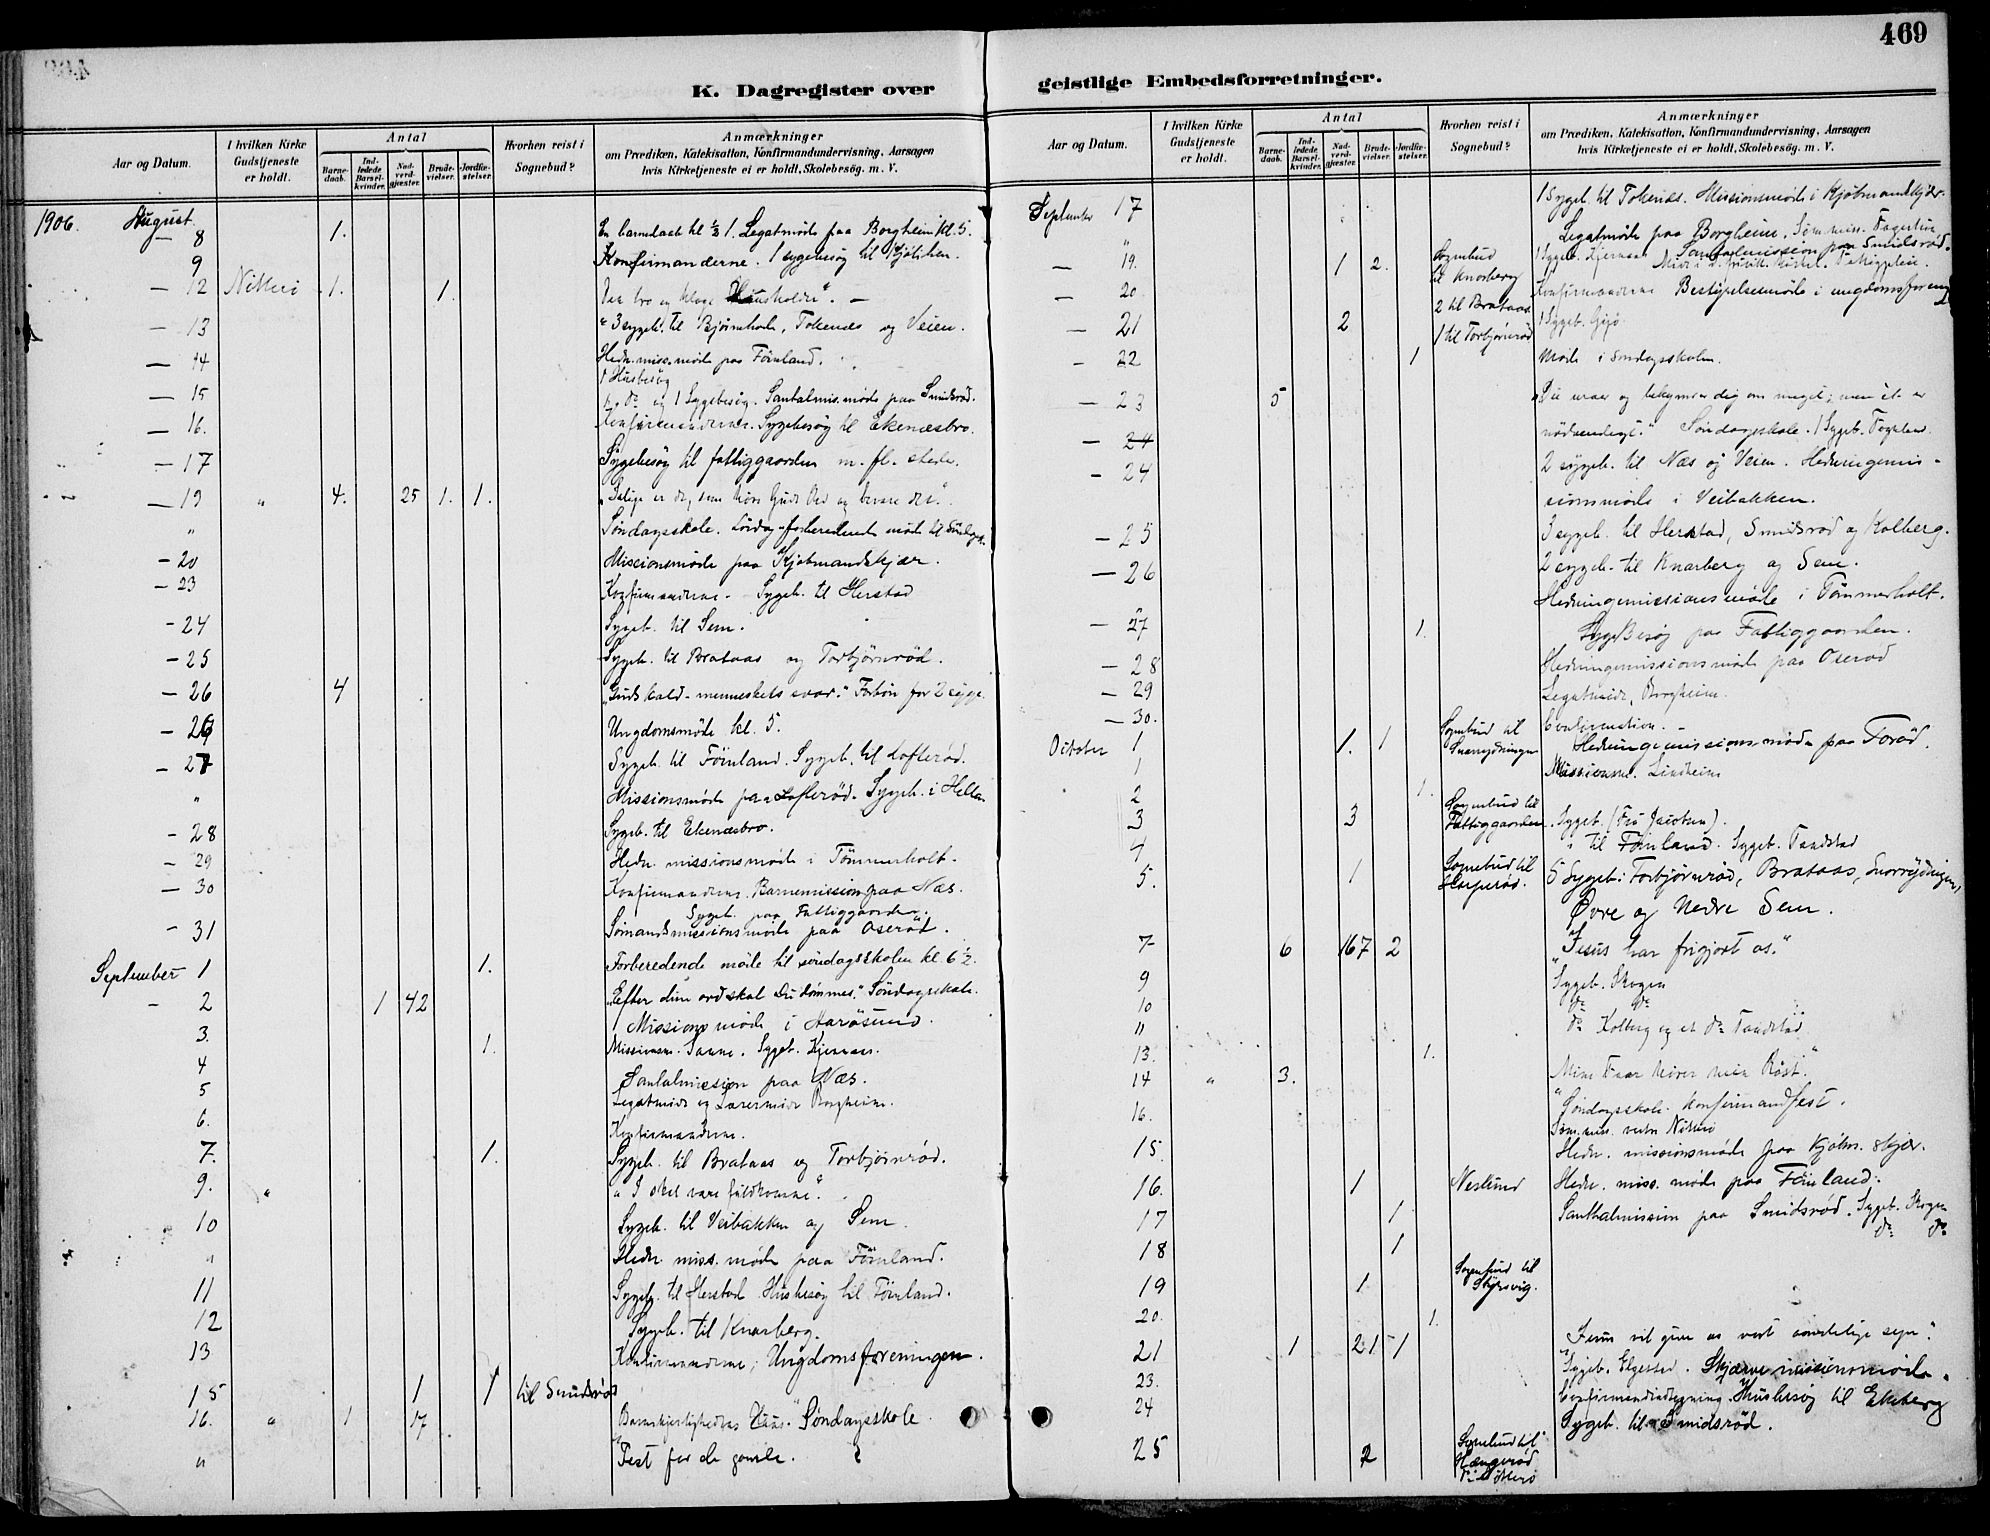 469
K. Dagregister over
Aar og Datum.
I hvilken Kirke Gudstjeneste er holdt.
Antal
Barne-daab.
Ind-ledede Barsel-kvinder.
Nad-verd-gjæster.
Brude-vielser.
Jordfæ-stelser.
Hvorhen reist i Sognebud?
Anmærkninger
om Prædiken, Katekisation, Konfirmandundervisning, Aarsagen
hvis Kirketjeneste ei er holdt, Skolebesög. m. V.
1906. August
— 8 1. En barnedaab kl ½ 1. Legatmøde paa Borgheim kl. 5.
9 Konfirmanderne. 1 sygebesøg til
— 12 Nøtterö 1. 1.
— 13 3 sygeb. til Bjørnholt, Tokenæs og Veien.
— 14 Hedn. miss. møde paa Förnland.
1 Husbesøg
— 15 og 1 Sygebesög. Santalmis. møde paa Smidsrød.
— 16. Konfirmanderne. Sygebesøg til Ekenæsbro.
— 17 Sygebesøg til fattiggaarden m. fl. steder.
— 19 " 4. 25 1. 1. "Salige er de, som høre Guds Ord og bevare det".
" Søndagsskole. Lördag forberedende møde til
— 20 Missionsmøde paa Kjøbmandskjær.
— 23 Konfirmanderne. Sygeb. til Herstad
- 24 Sygeb. til Sem.
- 25 Sygeb. til Brataas og Torbjørnrød.
- 26 4 "Guds kald - menneskets svar." Forbön for 2 syge.
- 26 Ungdomsmøde kl. 5.
- 27 Sygeb. til Förnland. Sygeb. til Lofterød.
" Missionsmøde paa Lofterød. Sygeb. i Hella.
- 28 Sygeb. til Ekenæsbro.
- 29 Hedn. missionsmøde i Tömmerholt.
- 30 Konfirmanderne. Barnemission paa Næs.
Sygeb. paa Fattiggaarden.
- 31 Sömandsmissionsmøde paa Oseröd.
September 1 1. Forberedende möde til söndagsskolen kl. 6½.
- 2 1 42 "Efter dine ord skal Du dömmes." Söndagsskole.
Missionsmöde i Aarösund.
3. 1. Sygeb. Kjernaas.
4 Santalmission paa Næs.
5 Legatmöde og Lærermöde Borgheim.
6. Konfirmanderne.
7. 1. Sygeb. til Brataas og Torbjørnrød.
9. " "I skal være fuldkomne."
10 Sygeb. til Veibakken og Sem.
" Hedn. miss. møde paa Förnland.
11 Sygeb. til Herstad Husbesøg til Förnland.
12 Sygeb. til Knarberg.
13 Konfirmanderne, Ungdomsforeningen.
15 1 1 til Smidsröd
16. " 1 17 Söndagsskole
" Fest for de gamle.
geistlige Embedsforretninger.
Aar og Datum.
I hvilken Kirke Gudstjeneste er holdt.
Antal
Barne-daab.
Ind-ledede Barsel-kvinder.
Nad-verd-gjester.
Brude-vielser.
Jordfæ-stelser.
Hvorhen reist i Sognebud?
Anmærkninger
om Prædiken, Katekisation, Konfirmandundervisning, Aarsagen
hvis Kirketjeneste ei er holdt, Skolebesög. m. V.
September 17 1 Sygeb. til Tokenæs. Missionsmöde i Kjøbmandskjær.
" Legatmøde paa Borgheim. Sömmiss.
— 19. 1 2. Sognebud til Knarberg 1 Sygeb. Kjernaas Santalmission paa Smidsrød.
— 20 2 til Brataas Konfirmanderne Bestyrelsemøde i ungdomsforeng.
— 21 2 1 til Torbjørnrød 1 Sygeb. Gipö
— 22 1 Möde i Söndagsskolen.
— 23 5 "Du uroer og bekymrer dig om meget, men et er
— 24 nödvendigt." Søndagsskole. 1 Sygeb.
— 24 2 sygeb. til Næs og Veien. Hedningemis-
sionsmøde i Veibakken.
— 25 3 sygeb. til Herstad, Smidsrød og Kolberg.
— 26 2 sygeb. til Knarberg og Sem.
Hedningemissionsmøde i Tömmerholt.
— 27 1. Sygebesøg paa Fattiggaarden.
— 28 Hedningemissionsmøde paa Oseröd
— 29 Legatmöde, Borgheim.
— 30. Confirmation.
October 1 1. 1 Sognebud til Snarrydningen Hedningemissionsmøde paa Forød.
1 Lindheim
2 1.
3 3 Sognebud til Fattiggaarden. Sygeb. (Fru Jacobsen).
4 " til Förnland. Sygeb. Tandstad
5. 1 Sognebud til 5 Sygeb: Torbjørnrød, Brataas, Snarrydningen,
Øvre og Nedre Sem.
7 6 167 2 "Jesus har frigjort os."
9 Sygeb. Skogen
10 do do
11 do Kolberg og et do Tandstad
13. 1.
14 " 3. Min Faar hører min Röst."
16. "Söndagsskole. Konfirmandfest.
Nötterö
15 Hedn. missionsmøde paa Kjöbm. skjær.
16. 1 Hedn. miss. møde paa Förnland.
17 1. Santhalmission paa Smidsrød. Sygeb. Skogen
18 1 do do
19 1. Sognebud til
20. 1.
21 1 21 1 "Jesus vil give os vort aandelige syn".
Sygeb. Elgestad. missionsmöde.
23. Husbesøg til Ekeberg
24 Sygeb. til Smidsröd.
25 2 Sognebud til